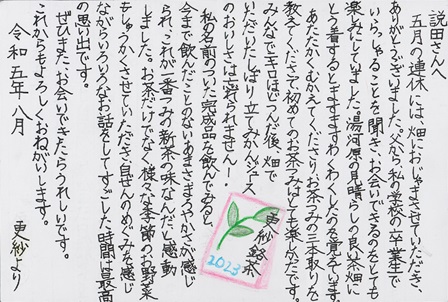 説田さんへ
五月の連休は、畑におじゃまさせていただき、
ありがとうございました。父から、私の学校の卒業生で
いらっしゃることを聞き、お会いできるのをとても
楽しみにしていました。湯河原の見晴らしの良い茶畑に
とう着するとますますわくわくしたのを覚えています。
あたたかくむかえてくださり、お茶つみの一手取りから
教えてくださって初めてのお茶つみはとても楽しかったです。
みんなで一キロほどつんだ後、畑で
いただいたしぼり立てみかんジュース
のおいしさは忘れられません!
私の名前のついた完成品を飲んでみると
今まで飲んだことのないあまさまろやかさが感じ
られ、これが一番つみの新茶の味なんだと感動
しました。お茶だけでなく様々な季節のお野菜
もしゅうかくさせていただき、自ぜんのめぐみを感じ
ながらいろいろなお話をしてすごした時間は最高
の思い出です。
ぜひまた、お会いできたらうれしいです。
これからもよろしくおねがいします。
令和五年八月
更紗より
更紗緑茶
2023